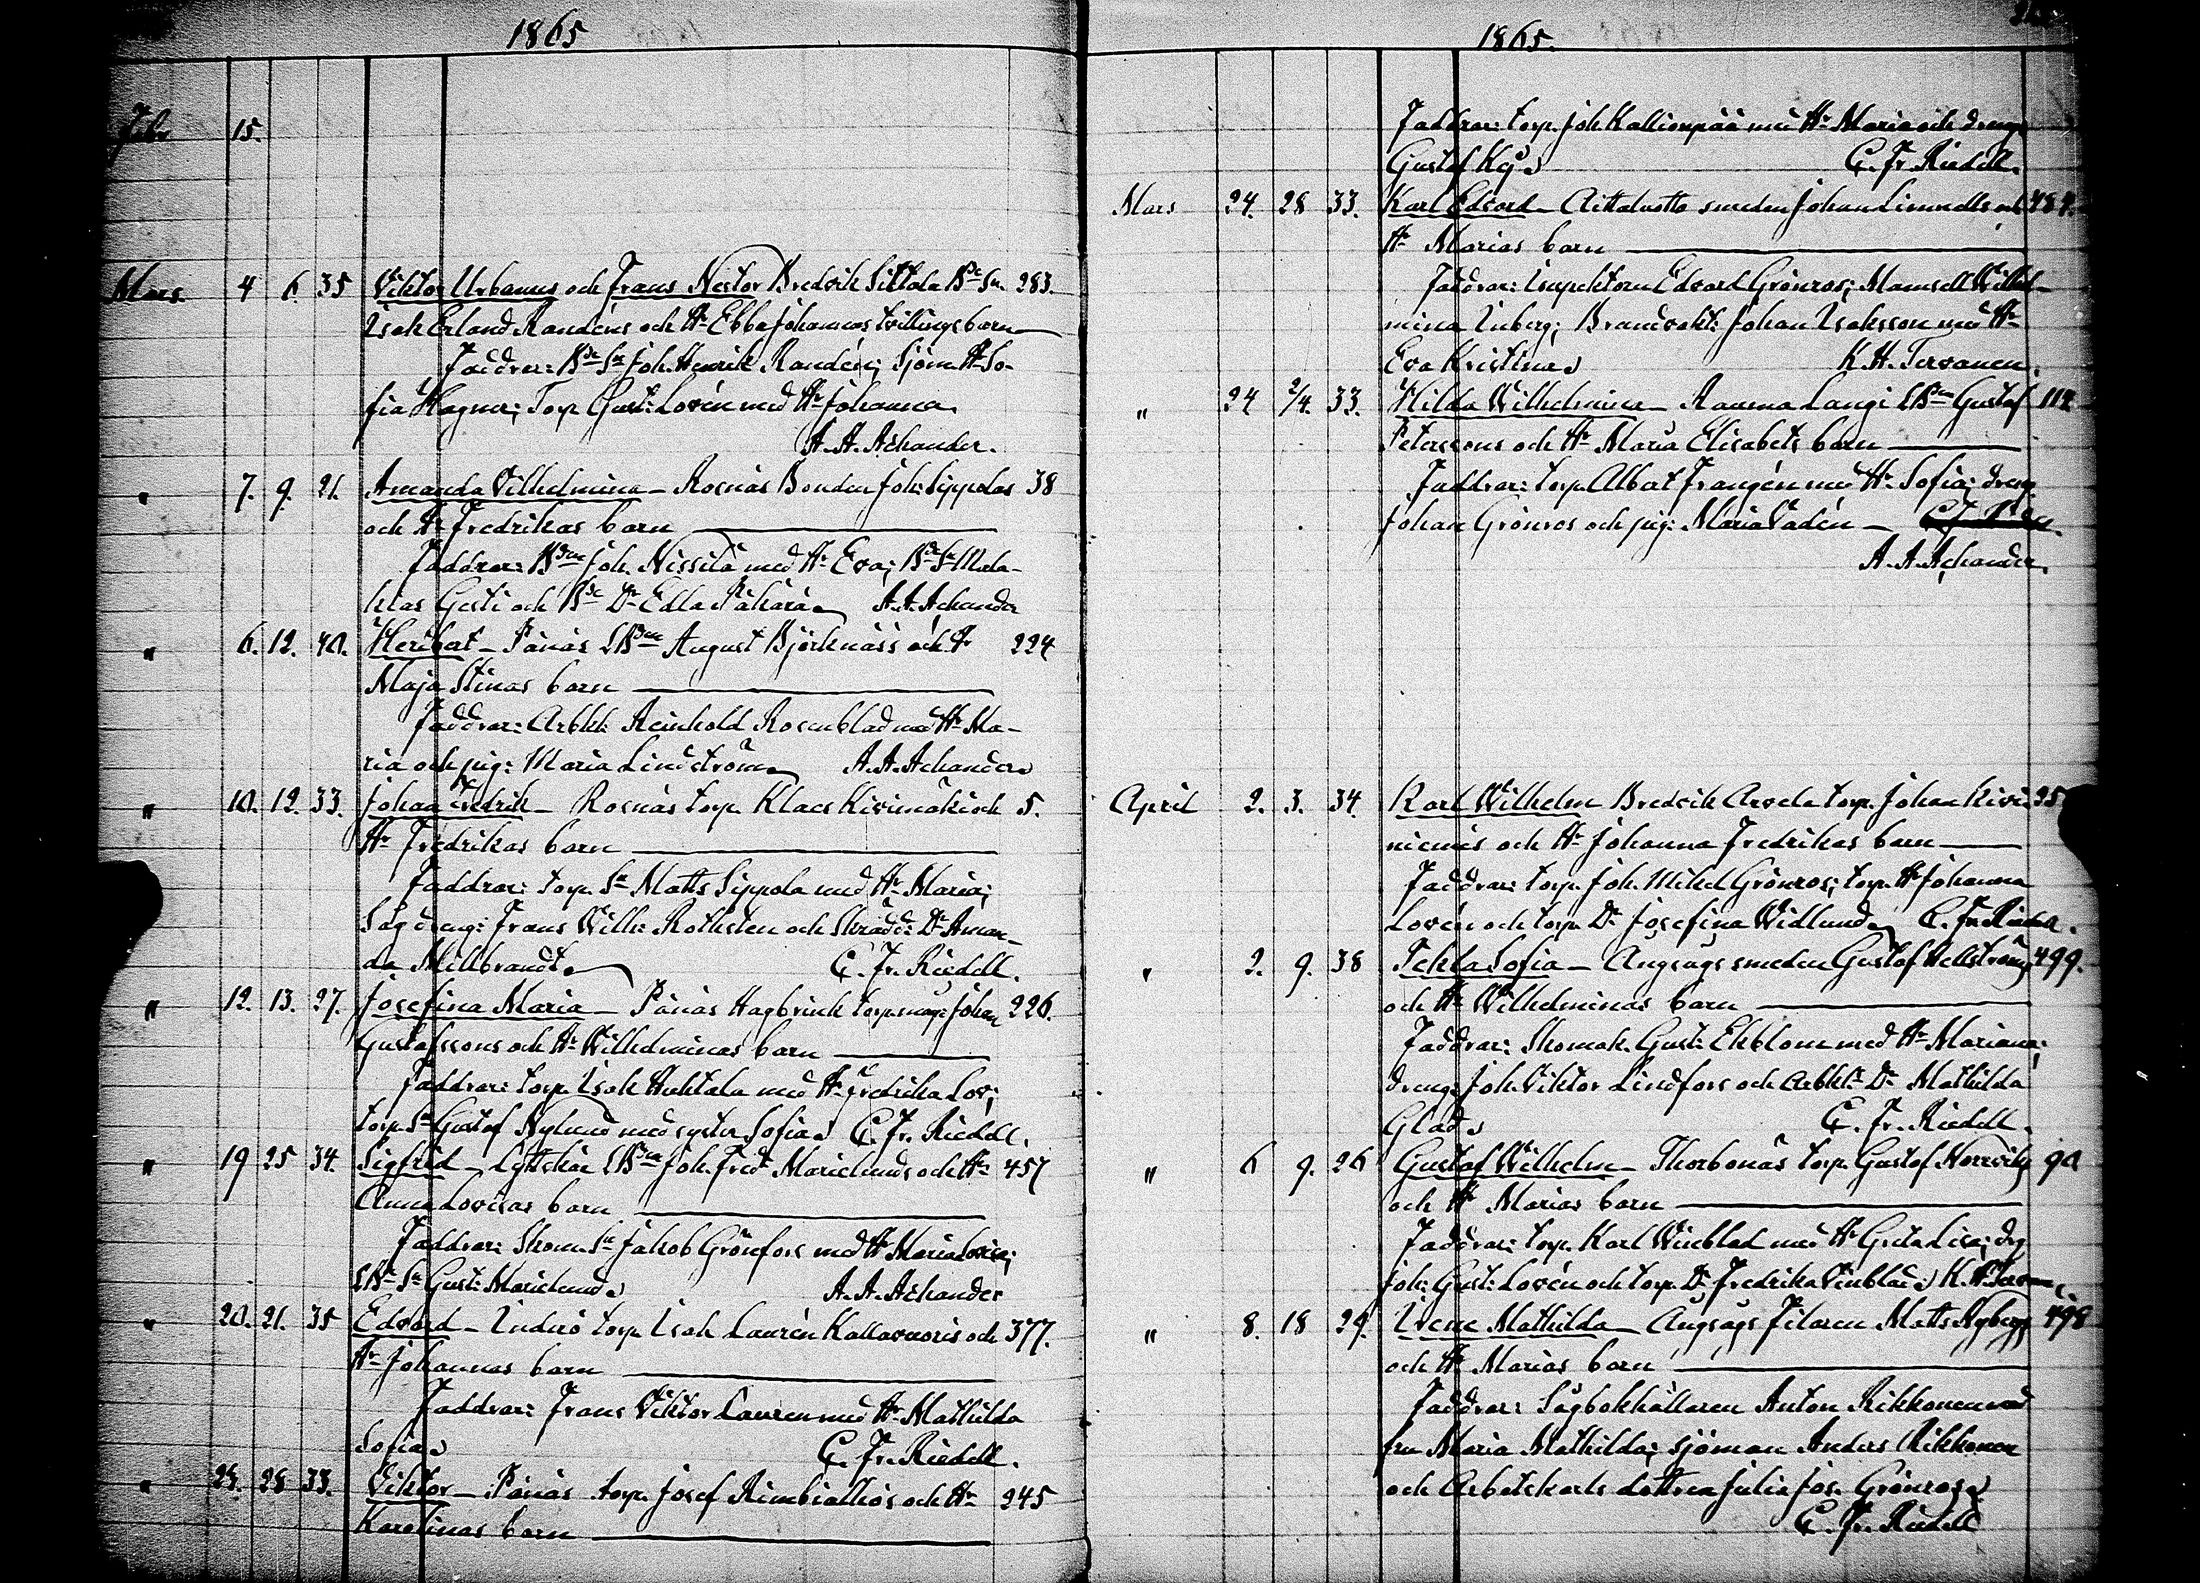 1865
Febr 15.
Mars. 4 6. 35 Viktor Urbanus och Frans Nestor Bredvik Sittola Bde Sn. 283.
Isak Erland Randéns och Hu Ebba Johannas tvillingsbarn
Faddrar: Bde Sn Joh. Henrik Randén; Sjöm. H. So-
fia Hagner; Torp. Gust: Lovén med Hu Johanna
A. A. Achander.
" 7. 9. 21. Amanda Vilhelmina – Rosnäs Bonden Joh: Sippolas 38
och Hu Fredrikas barn
Faddrar: Bden Joh. Nissilä med Hu Eva; Bde Sn Mala-
kias Gesti och Bde Dr Edla A. A. Achander
" 6. 12. 40. Heribert – Pänäs LBden August Björknäss och Hu 224
Maja Stinas barn
Faddrar: Arbkl: Reinhold Rosenblad med Hu Ma-
ria och pig: Maria Lindström A. A. Achander
" 10. 12. 33. Johan Fredrik – Rosnäs torp. Klaes Kivimäki och 5.
Hu Fredrikas barn
Faddrar: torp. Sn Matts Sippola med Hu Maria;
Sågdreng: Frans Wilh: Rothsten och Skrädd: Dr Aman-
da Millbrandt C. Fr. Riedell.
" 12. 13. 27. Josefina Maria – Pänäs Hagbrink torp.måg: Johan 226.
Gustafssons och Hu Wilhelminas barn
Faddrar: torp. Isak Huhtala med Hu Fredrika Lov;
torp. Sn Gustaf Nylund med syster Sofia C. Fr. Riedell.
" 19 25 34. Sigfrid – Lyttskär LBden Joh. Fredr Marielunds och Hu 457
Anna Lovisas barn
Faddrar: Skom. Sn Jakob Grönfors med Hu Maria Lovisa;
LBde Sn Gust: Marielund A. A. Achander
" 20. 21. 35 Edvard – Inderö torp. Isak Laurén Kallavuoris och 377.
Hu Johannas barn
Faddrar: Frans Viktor Lauren med Hu Mathilda
Sofia C. Fr. Riedell.
" 28 33. Viktor – Pänäs torp. Josef och Hu 245
Karolinas barn
1865.
Faddrar: torp. Joh. Kallionpää med Hu Maria och dreng
Gustaf C. Fr. Riedell.
Mars 24. 28 33. Karl Edvard – Aittaluotto smeden Johan och 484.
Hu Marias barn
Faddrar: Inspektorn Edvard Grönros; Mamsell Wilhel-
mina Inberg; Brandvakt: Johan Isaksson med Hu
Eva Kristina K. H. Tervonen.
" 24 2/4. 33. Hilda Wilhelmina – Rauma Langi LBden Gustaf 112
Peterssons och Hu Maria Elisabets barn
Faddrar: torp. Albert Frangén med Hu Sofia; dreng.
Johan Grönros och pig: Maria Vadén –
A. A. Achander.
April 2. 3. 34. Karl Wilhelm Bredvik Arvela torp. Johan Kivi- 25
niemis och Hu Johanna Fredrikas barn
Faddrar: torp. Joh. Mikel Grönros; torp. H. Johanna
Lovén och torp. Dr Josefina Widlund C. Fr. Riedell.
" 2. 9. 38 Tekla Sofia – Ångsågs smeden Gustaf Hellströms 499.
och Hu Wilhelminas barn
Faddrar: Skomak. Gust: Ekblom med Hu Mariana;
dreng: Joh. Viktor Lindfors och arbkls Dr Mathilda
Glad C. Fr. Riedell.
" 6 9. 26 Gustaf Wilhelm – Thorbonäs torp. Gustaf 90
och Hu Marias barn
Faddrar: torp. Karl Winblad med Hu Greta Lisa; drg
Joh: Gust: Lovén och torp. Dr Fredrika Vinblad
" 8. 18 29. Irene Mathilda – Ångsågs Filaren Matts Nybergs 498
och Hu Marias barn
Faddrar: Sågbokhållaren Anton Rikkonen med
fru Maria Mathilda; sjöman Anders Rikkonen
och Arbetskarls dottren Julia Jos. Grönros
C. Fr. Riedell